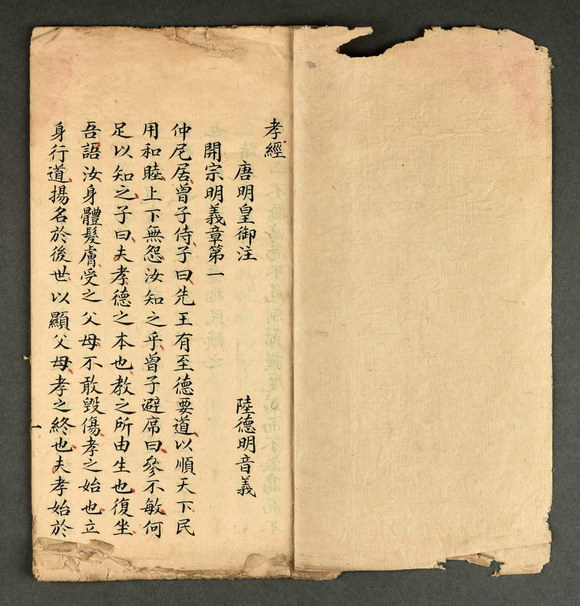 孝經
唐明皇御注 陸德明音義
開宗明義章第一
仲尼居曾子侍子曰先王有至德要道以順天下民
用和睦上下無怨汝知之乎曾子避席曰參不敏何
足以知之子曰夫孝德之本也教之所由生也復坐
吾語汝身體髮膚受之父母不敢毀傷孝之始也立
身行道揚名於後世以顯父母孝之終也夫孝始於
一